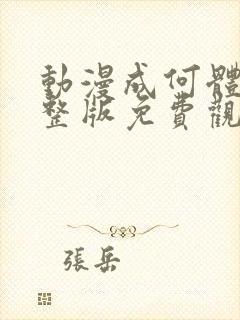 動漫成何體
整版免費觀
張岳